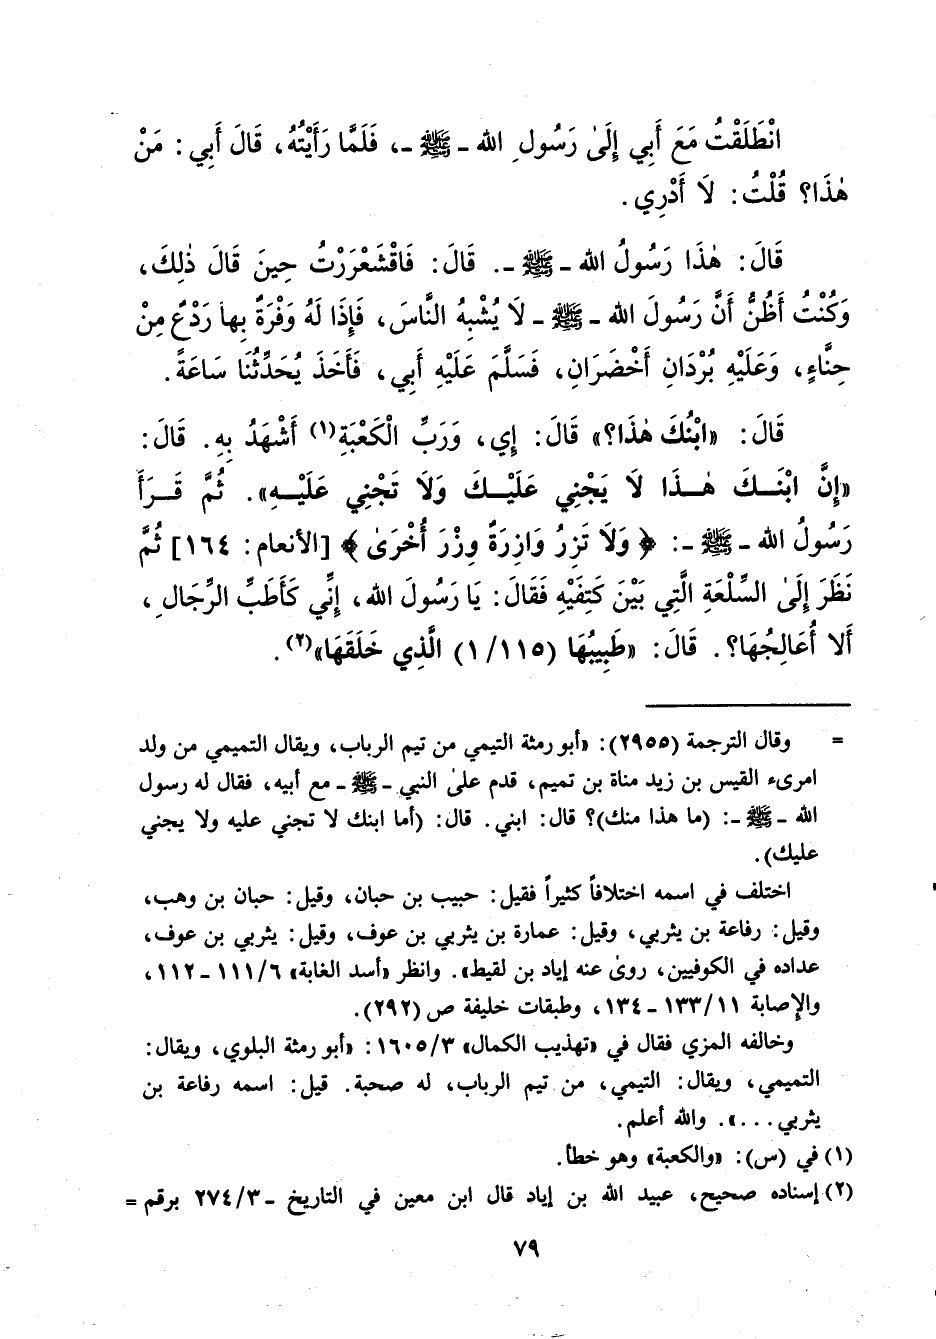 انْطَلَقْتُ مَعَ أَبِي إِلَىٰ رَسُولِ الله ـ ﷺ ـ، فَلَمَّا رَأَيْتُهُ، قَالَ أَبِي: مَنْ
هٰذَا؟ قُلْتُ: لَا أَدْرِي.
قَالَ: هٰذَا رَسُولُ الله ـ ﷺ ـ. قَالَ: فَاقْشَعْرَرْتُ حِينَ قَالَ ذٰلِكَ،
وَكُنْتُ أَظُنُّ أَنَّ رَسُولَ الله ـ ﷺ ـ لَا يُشْبِهُ النَّاسَ، فَإِذَا لَهُ وَفْرَةٌ بِهَا رَدْعٌ مِنْ
حِنَّاءٍ، وَعَلَيْهِ بُرْدَانِ أَخْضَرَانِ، فَسَلَّمَ عَلَيْهِ أَبِي، فَأَخَذَ يُحَدِّثُنَا سَاعَةً.
قَالَ: «ابْنُكَ هٰذَا؟» قَالَ: إِي، وَرَبِّ الْكَعْبَةِ(١) أَشْهَدُ بِهِ. قَالَ:
«إِنَّ ابْنَـكَ هٰـذَا لَا يَجْنِي عَلَيْـكَ وَلَا تَجْنِي عَلَيْـهِ». ثُمَّ قَـرَأَ
رَسُولُ الله ـ ﷺ ـ: ﴿ وَلَا تَزِرُ وَازِرَةٌ وِزْرَ أُخْرَىٰ ﴾ [الأنعام: ١٦٤] ثُمَّ
نَظَرَ إِلَىٰ السِّلْعَةِ الَّتِي بَيْنَ كَتِفَيْهِ فَقَالَ: يَا رَسُولَ الله، إِنِّي كَأَطَبِّ الرِّجَالِ،
أَلا أُعَالِجُهَا؟. قَالَ: «طَبِيبُهَا (١/١١٥) الَّذِي خَلَقَهَا»(٢).
= وقال الترجمة (٢٩٥٥): «أبو رمثة التيمي من تيم الرباب، ويقال التميمي من ولد
امرىء القيس بن زيد مناة بن تميم، قدم علىٰ النبي ـ ﷺ ـ مع أبيه، فقال له رسول
الله ـ ﷺ ـ: (ما هذا منك)؟ قال: ابني. قال: (أما ابنك لا تجني عليه ولا يجني
عليك).
اختلف في اسمه اختلافاً كثيراً فقيل: حبيب بن حبان، وقيل: حبان بن وهب،
وقيل: رفاعة بن يثربي، وقيل: عمارة بن يثربي بن عوف، وقيل: يثربي بن عوف،
عداده في الكوفيين، روىٰ عنه إياد بن لقيط». وانظر «أسد الغابة» ٦/١١١ ـ ١١٢،
والإصابة ١١/١٣٣ ـ ١٣٤، وطبقات خليفة ص (٢٩٢).
وخالفه المزي فقال في «تهذيب الكمال» ٣/١٦٠٥: «أبو رمثة البلوي، ويقال:
التميمي، ويقال: التيمي، من تيم الرباب، له صحبة. قيل: اسمه رفاعة بن
يثربي...». والله أعلم.
(١) في (س): «والكعبة» وهو خطأ.
(٢) إسناده صحيح، عبيد الله بن إياد قال ابن معين في التاريخ ـ ٣/٢٧٤ برقم =
٧٩